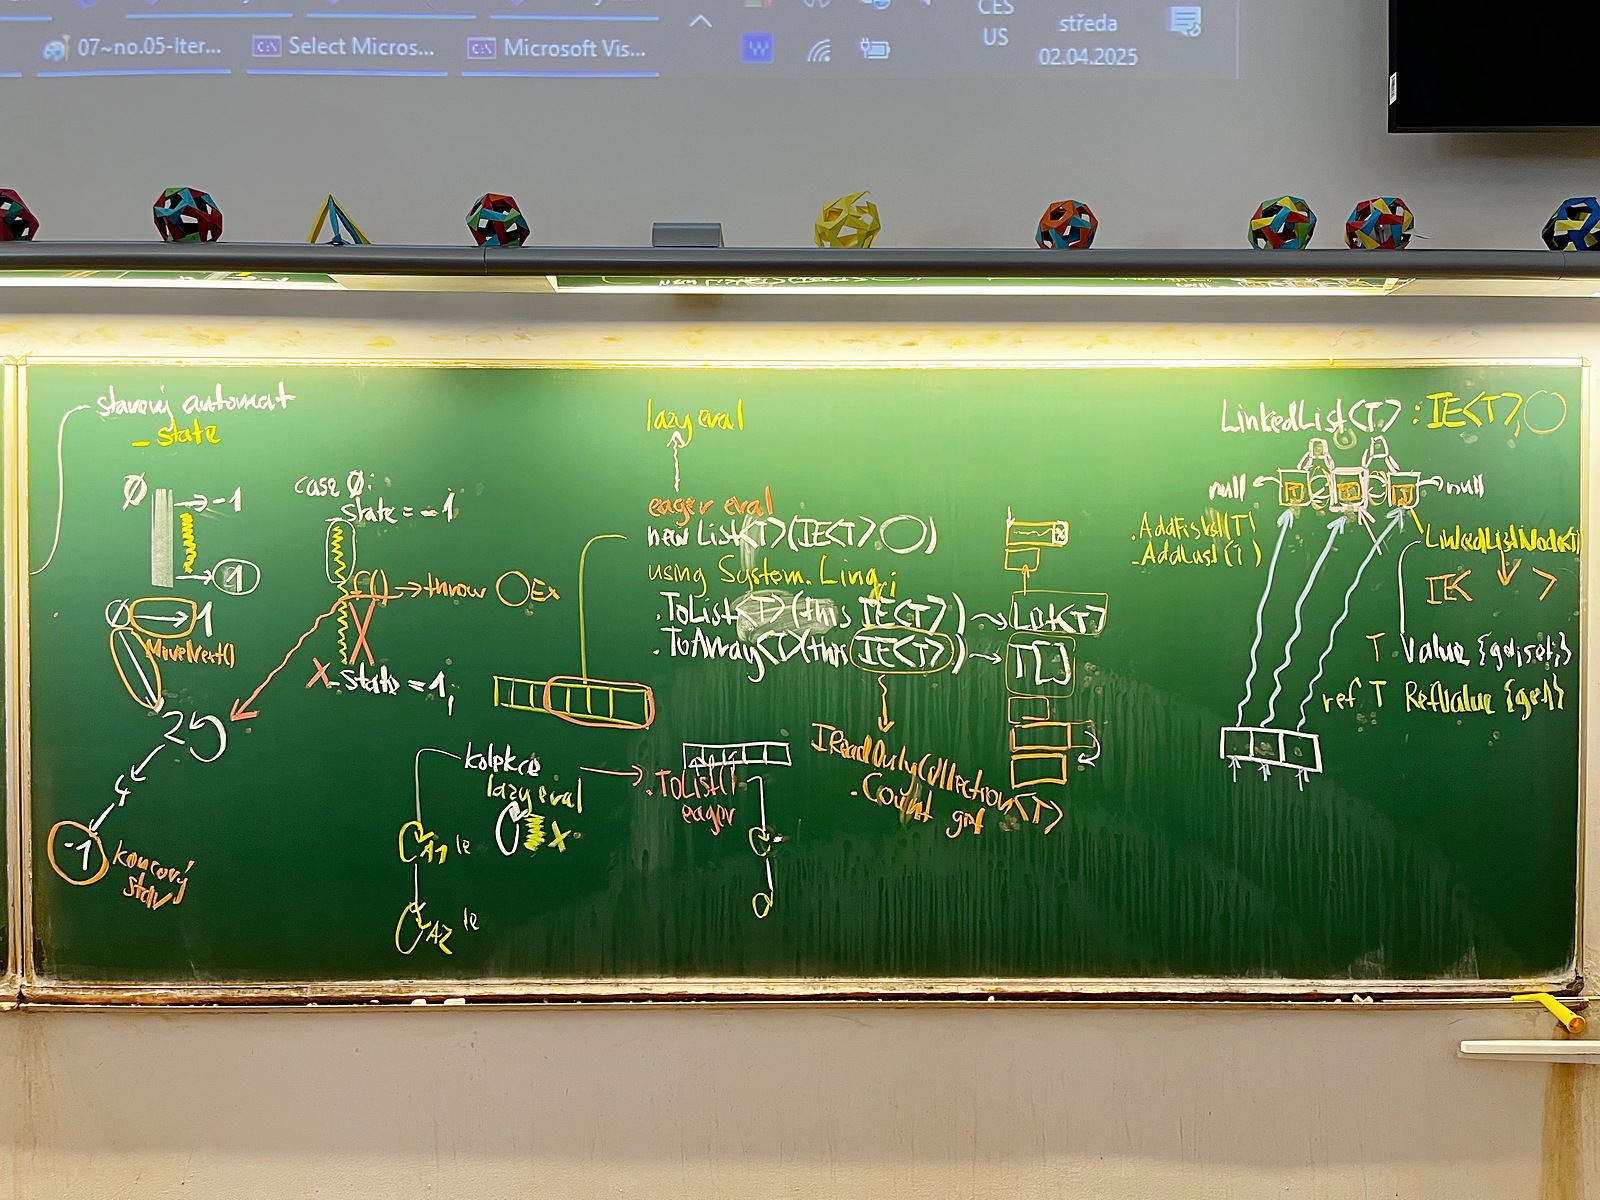 07~no.05-Iter...
Select Micros...
Microsoft Vis...
CES
US
středa
02.04.2025
stavový automat
_state
Ø
→ -1
→ 1
Ø → 1
MoveNext()
25
-1
koncový
stav
case Ø:
state = -1
f() → throw Ex
X _state = 1;
lazy eval
eager eval
new List<T>(IE<T> )
using System.Linq;
.ToList<T>(this IE<T>) → List<T>
.ToArray<T>(this IE<T>) → T[]
IReadOnlyCollection<T>
.Count get
kolekce
lazy eval
X
.ToList()
eager
A1 le
A2 le
LinkedList<T> : IE<T>,
null
T
T
T
null
.AddFirst(T)
.AddLast(T)
LinkedListNode<T>
IE< >
T Value {get; set;}
ref T RefValue {get}